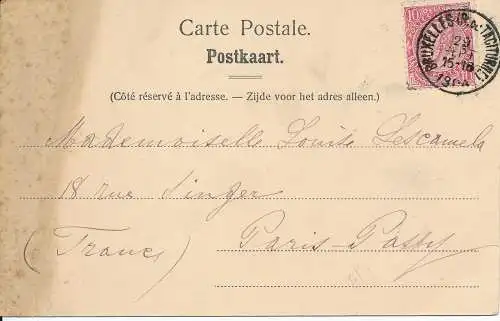 Carte Postale.
Postkaart.
(Côté réservé à l'adresse. – Zijde voor het adres alleen.)
10
BRUXELLES
15-16
Mademoiselle Louise Lescamela
18 rue Singer
Paris-Passy
(France)